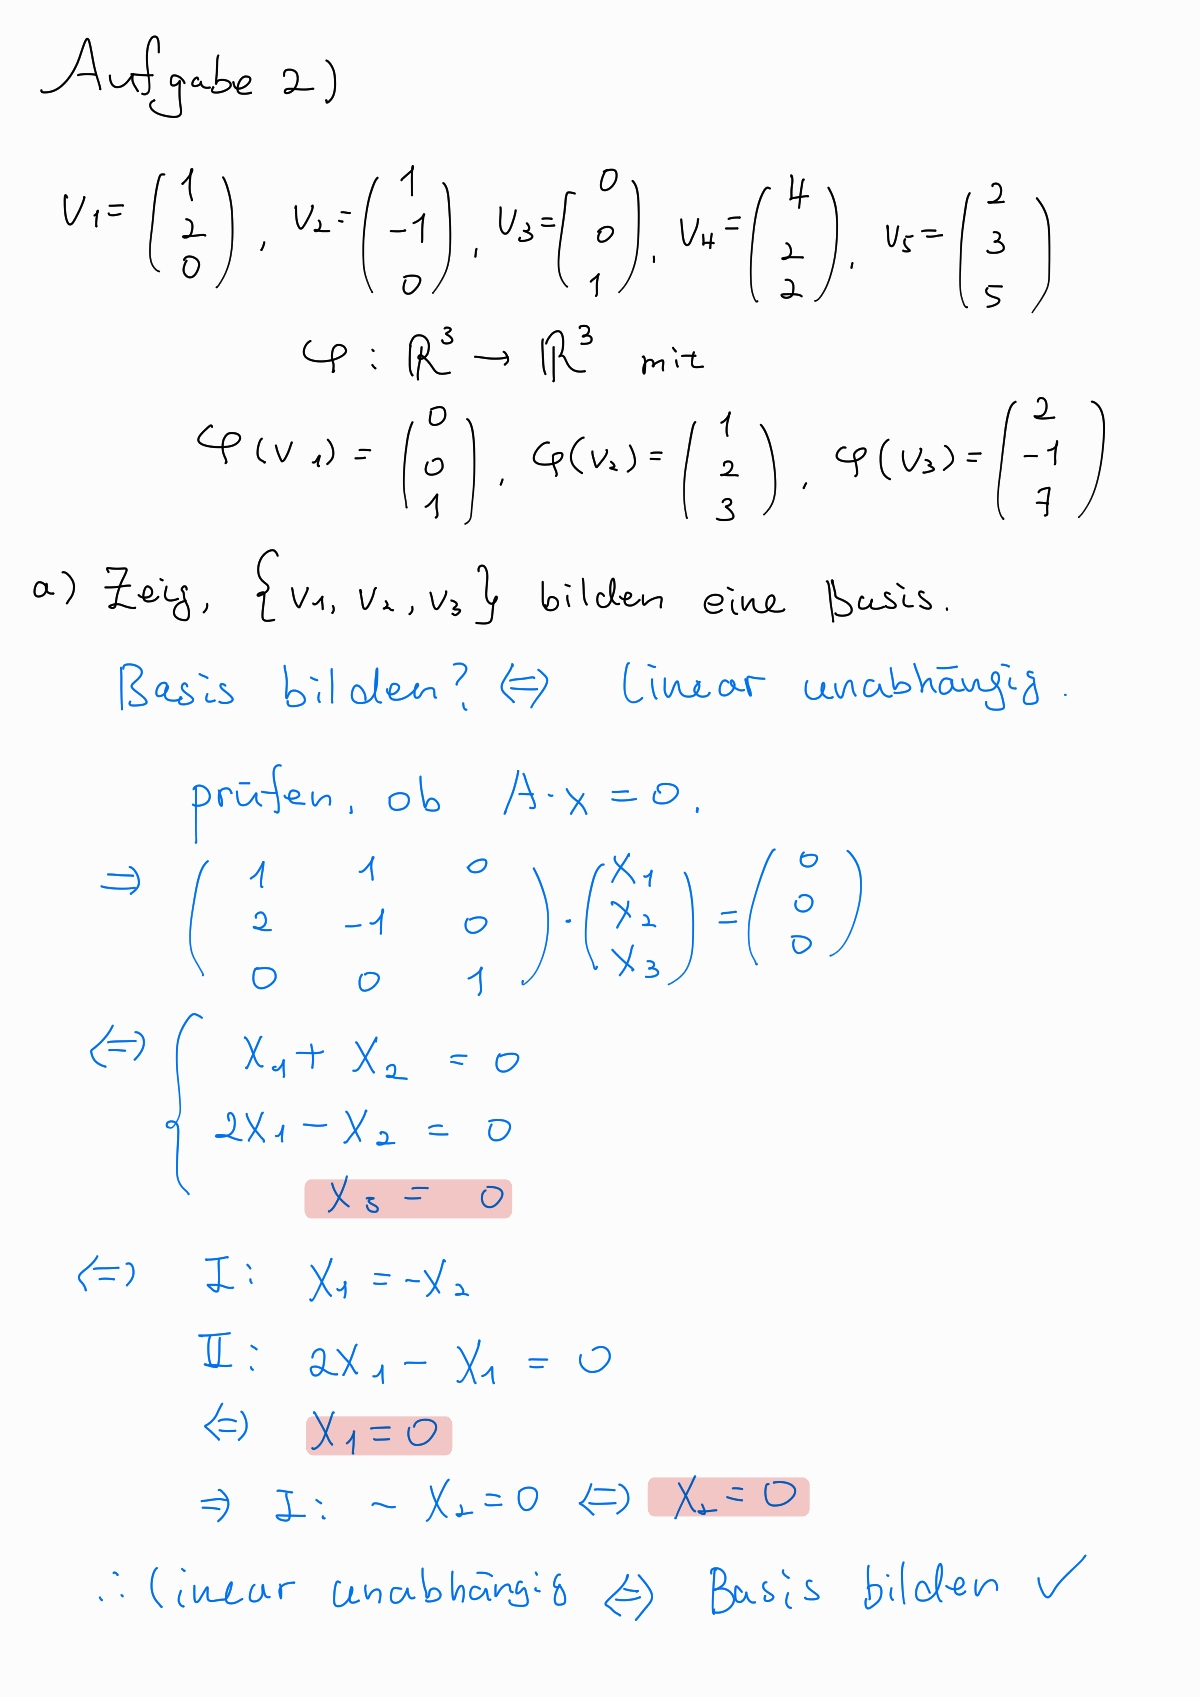 Aufgabe 2)
V₁ = (1 2 0), V₂ = (1 -1 0), V₃ = (0 0 1), V₄ = (4 2 2), V₅ = (2 3 5)
φ : ℝ³ → ℝ³ mit
φ(V₁) = (0 0 1), φ(V₂) = (1 2 3), φ(V₃) = (2 -1 7)
a) Zeig, {V₁, V₂, V₃} bilden eine Basis.
Basis bilden? ⇔ Linear unabhängig.
prüfen, ob A·x = 0.
⇒ (1 1 0
2 -1 0
0 0 1) · (X₁ X₂ X₃) = (0 0 0)
⇔ { X₁ + X₂ = 0
2X₁ - X₂ = 0
X₃ = 0
⇔ I: X₁ = -X₂
II: 2X₁ - X₁ = 0
⇔ X₁ = 0
⇒ I: - X₂ = 0 ⇔ X₂ = 0
∴ Linear unabhängig ⇔ Basis bilden ✓